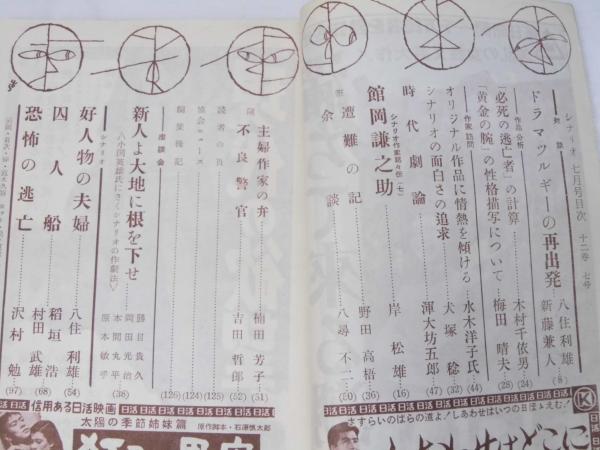 シナリオ 七月号目次 十二巻 七号
対談
ドラマツルギーの再出発
八住利雄
新藤兼人
(8)
作品分析
「必死の逃亡者」の計算
木村千依男
(24)
「黄金の腕」の性格描写について
梅田晴夫
(28)
作家訪問
オリジナル作品に情熱を傾ける
水木洋子氏
(44)
シナリオの面白さの追求
犬塚稔
(32)
時代劇論
渾大坊五郎
(47)
シナリオ作家銘々伝(七)
館岡謙之助
岸松雄
(16)
遭難の記
野田高梧
(36)
余談
八尋不二
(20)
主婦作家の弁
楠田芳子
(51)
不良警官
吉田哲郎
(52)
読者の頁
(123)
協会ニュース
(124)
編集後記
(126)
座談会
新人よ大地に根を下せ
八小国英雄氏にきくシナリオの作劇法
勝目貴久
岡田光治
本間丸平
原本敏乎
(38)
シナリオ
好人物の夫婦
八住利雄
(54)
囚人船
稲垣浩
村田武雄
(68)
恐怖の逃亡
沢村勉
(97)
日活 日活 日活 日活 日活 日活 日活
さすらいのはらの道よ!しあわせはいつの日ほゝえむ!
しあわせはどこに
信用ある日活映画
太陽の季節姉妹篇
原作脚本・石原慎太郎
狂った果実